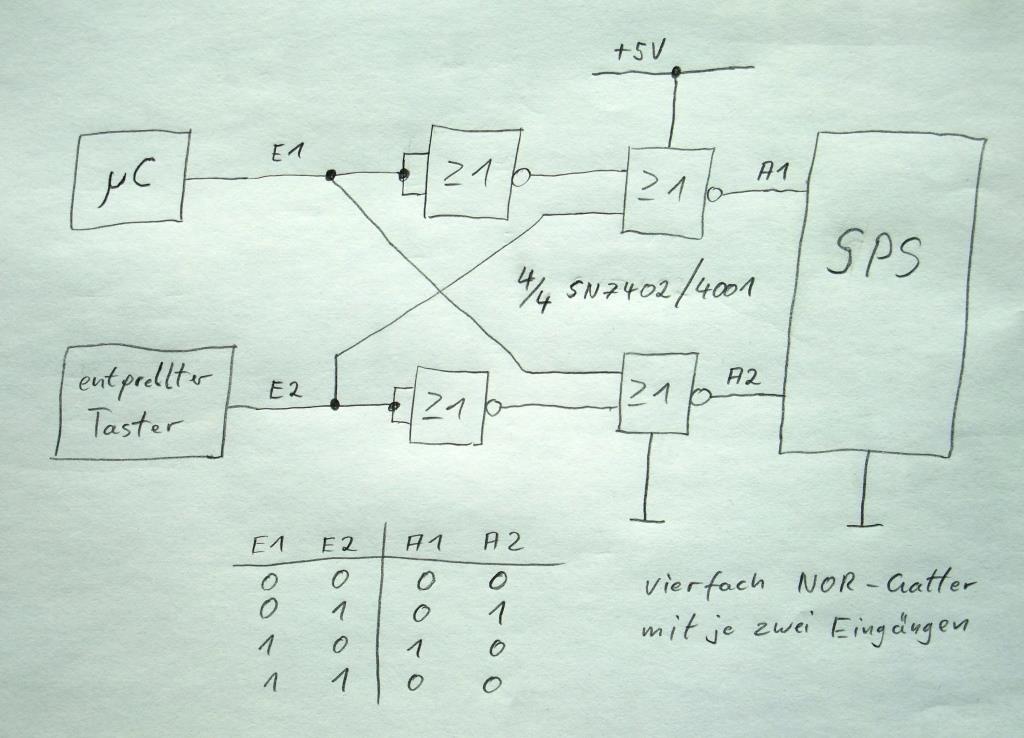 +5V
E1
A1
µC
≥1
≥1
SPS
4/4 SN7402/4001
entprellter
Taster
E2
≥1
≥1
A2
E1 E2 A1 A2
0 0 0 0
0 1 0 1
1 0 1 0
1 1 0 0
vierfach NOR-Gatter
mit je zwei Eingängen